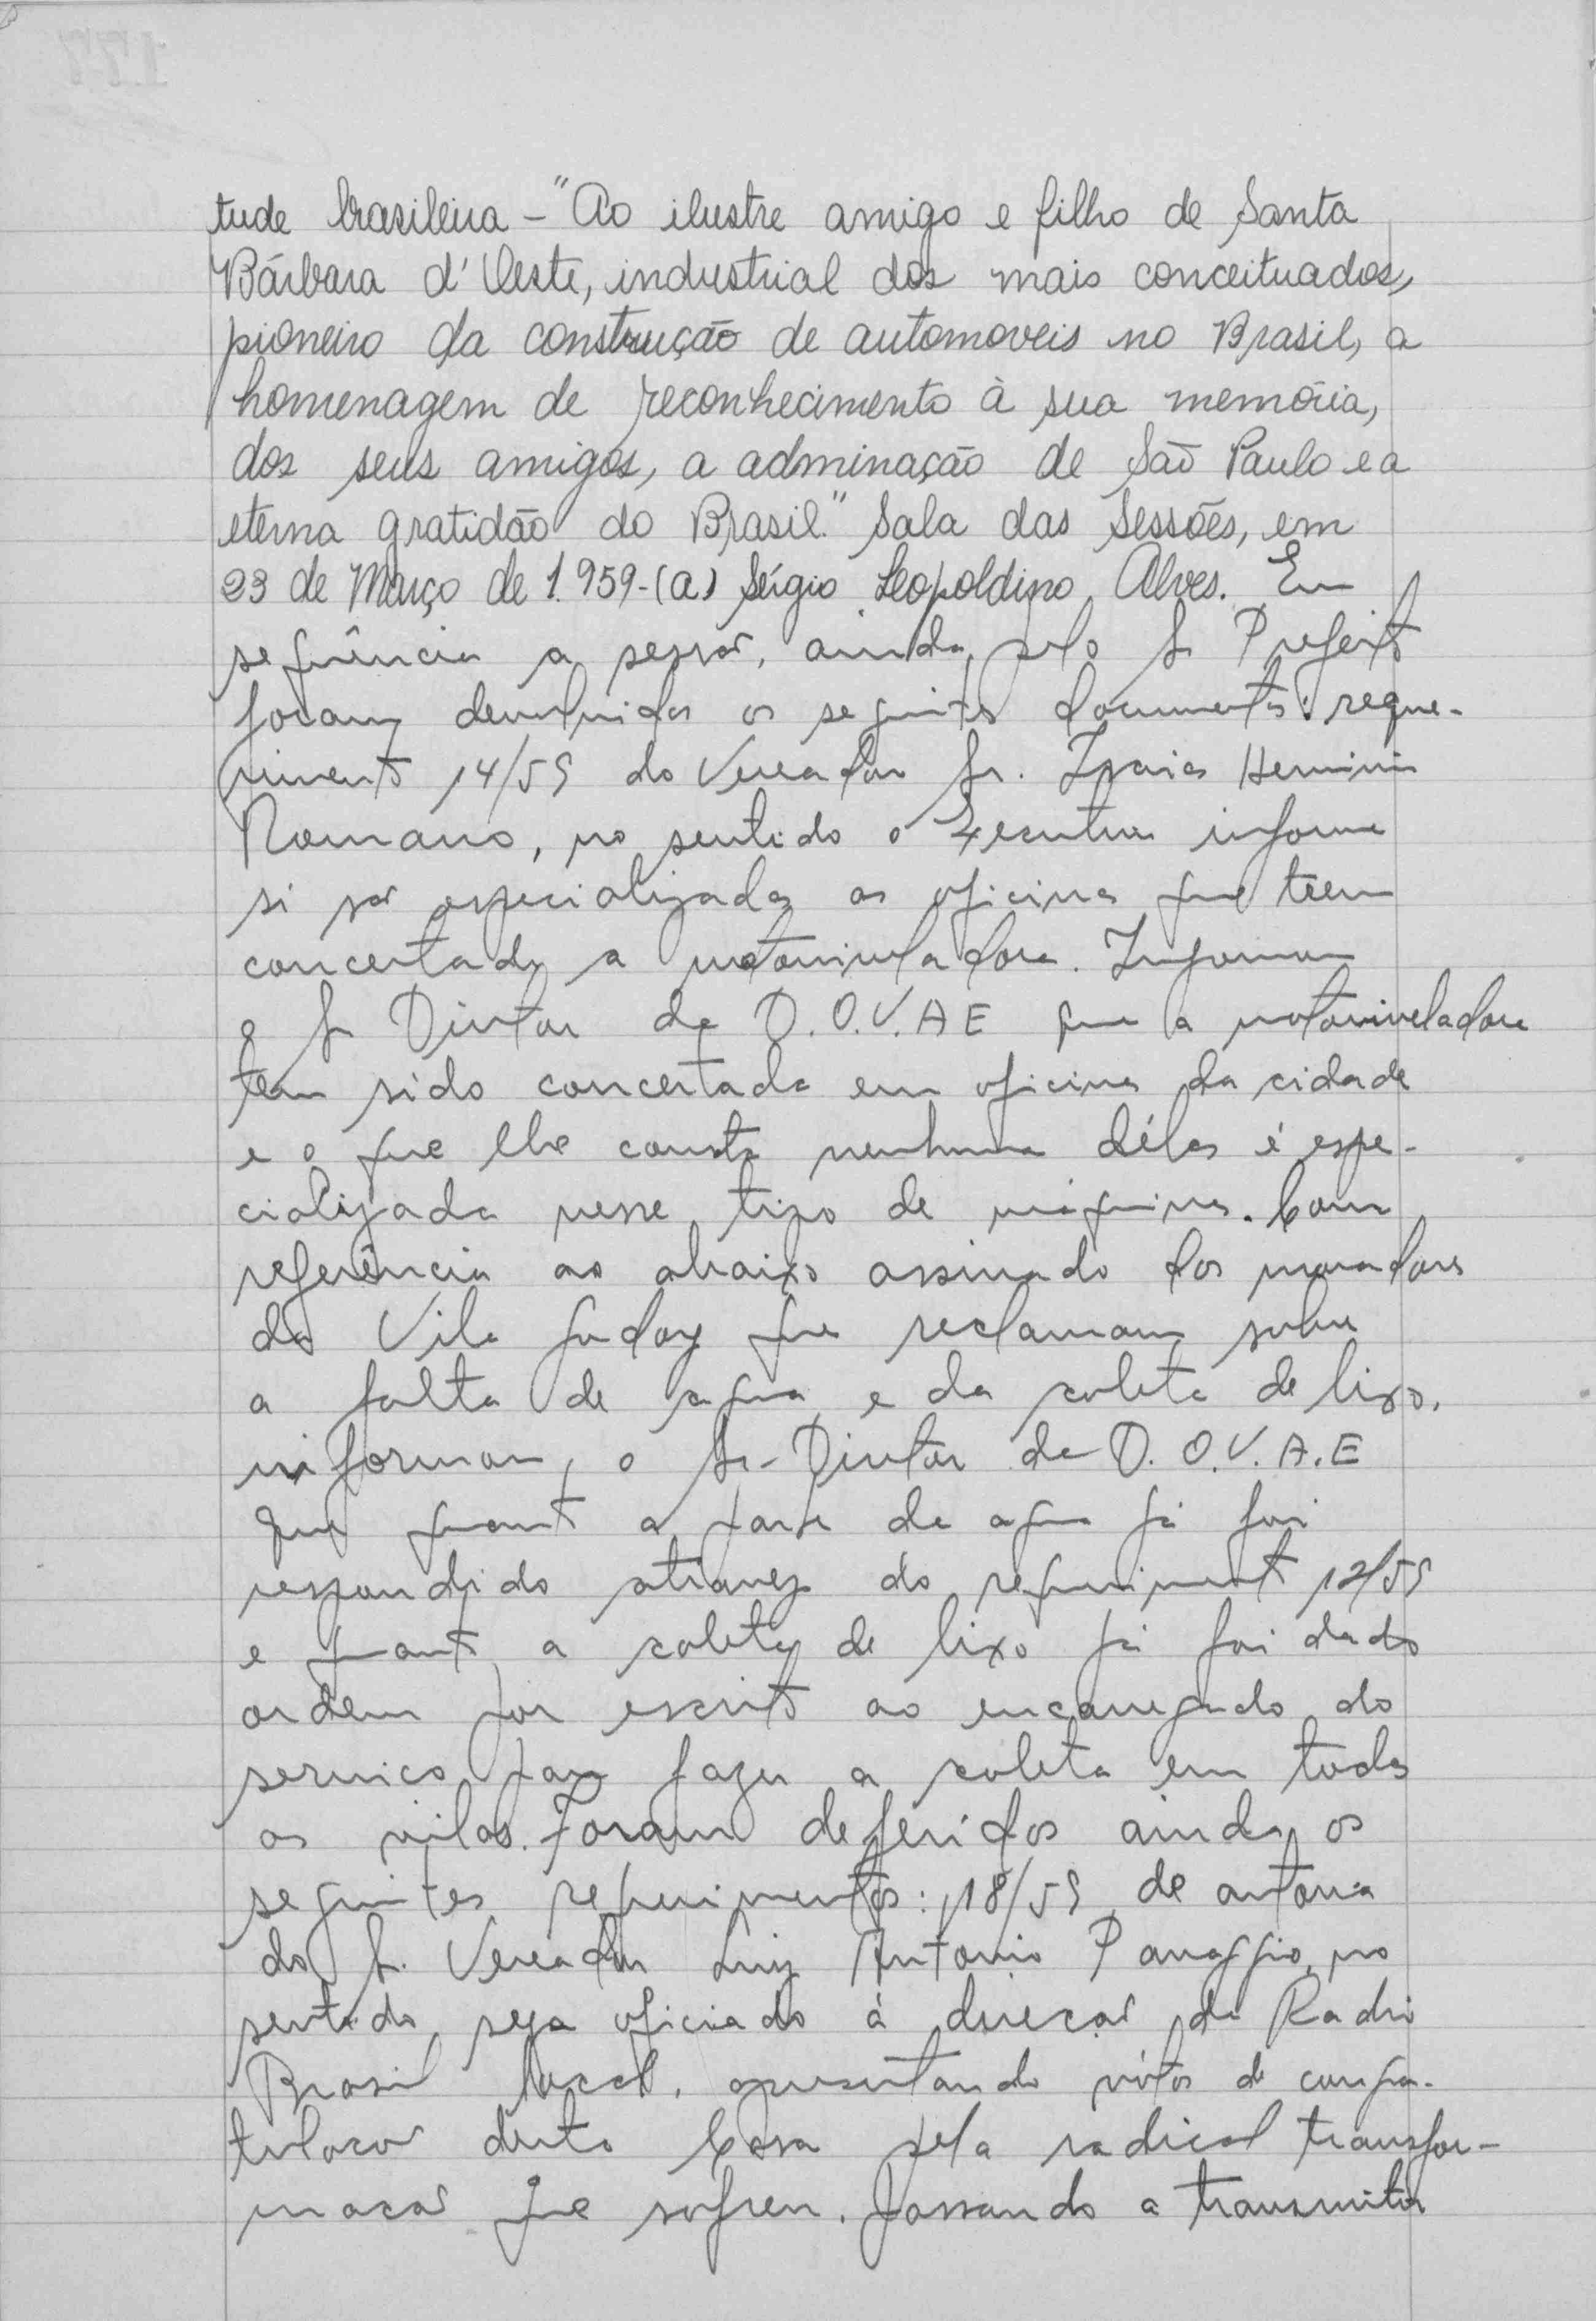 tude brasileira - "Ao ilustre amigo e filho de Santa
Bárbara d'Oeste, industrial dos mais conceituados,
pioneiro da construção de automoveis no Brasil, a
homenagem de reconhecimento à sua memória,
dos seus amigos, a adminação de São Paulo e a
eterna gratidão do Brasil." Sala das Sessões, em
23 de Março de 1.959-(a) Sérgio Leopoldino Alves. Em
sequência a sessão, ainda pelo Sr Prefeito
foram devolvidos os seguintes documentos: reque-
rimento 14/59 do Vereador Sr. Isaias Herminio
Romano, no sentido o Executivo informe
si são especializadas as oficinas que teem
concertado a motoniveladora. Informou
o Sr Diretor da D.O.V.A E que a motoniveladora
tem sido concertada em oficinas da cidade
e o que lhe consta nenhuma délas é espe-
cializada nesse tipo de máquinas. Com
referência ao abaixo assinado dos moradores
da Vila Godoy que reclamam sobre
a falta de agua e da coleta de lixo,
informou, o Sr- Diretor da D. O.V.A.E
que quanto a parte da agua já foi
respondido atravez do requerimento 12/59
e quanto a coleta de lixo já foi dado
ordem por escrito ao encarregado do
serviço para fazer a coleta em todas
as vilas. Foram deferidos ainda os
seguintes requerimentos: 18/59 de autoria
do Sr. Vereador Luiz Antonio Panaggio, no
sentido seja oficiado à direção da Radio
Brasil local, apresentando vótos de congra-
tulação desta Casa pela radical transfor-
mação que sofreu, passando a transmitir